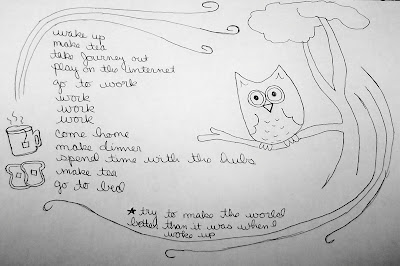 wake up
make tea
take Journey out
play on the internet
go to work
work
work
work
come home
make dinner
spend time with the hubs
make tea
go to bed
* try to make the world
better than it was when I
woke up